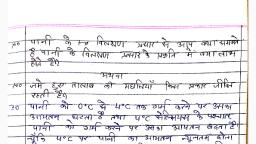 प्र० पानी के असामान्य प्रसार से आप क्या समझते
है पानी के विलक्षण प्रसार के प्रकृति में क्या लाभ
होते है?
अथवा
प्र० जमे हुए तालाब की मछलियाँ किस प्रकार जीवित
रहती है?
उ० पानी को 0°C से 4°C तक गर्म करने पर उसका
आयतन घटता है तथा 4°C सेल्सियस के पश्चात
पानी को गर्म करने पर उसका आयतन बढ़ता है
चूँकि 4°C पर पानी का आयतन न्यूनतम होता